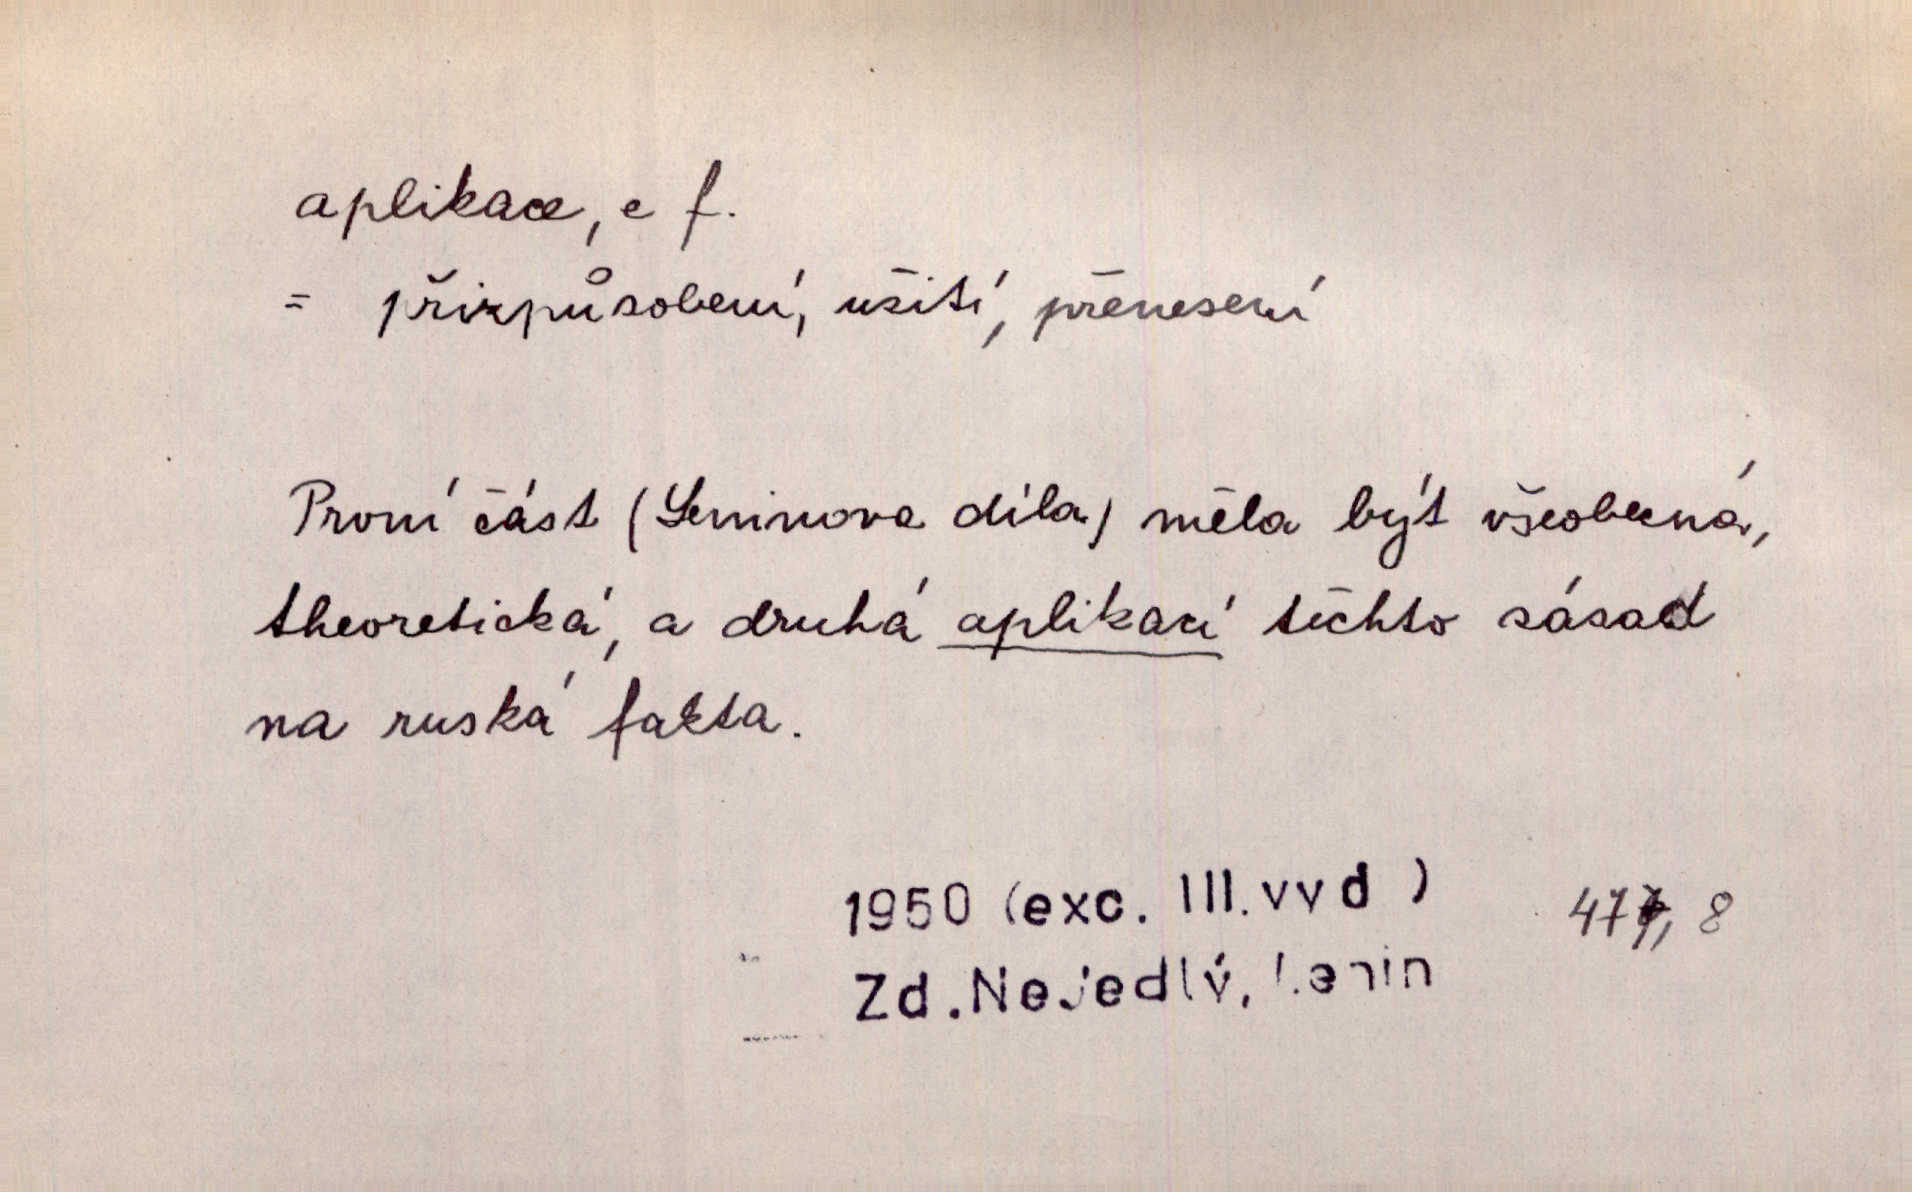 aplikace, e f.
= přizpůsobení, užití, přenesení
První část (Leninova díla) měla být všeobecná,
theoretická, a druhá aplikací těchto zásad
na ruská fakta.
1950 (exc. III. vyd ) 477, 8
Zd. Nejedlý, Lenin